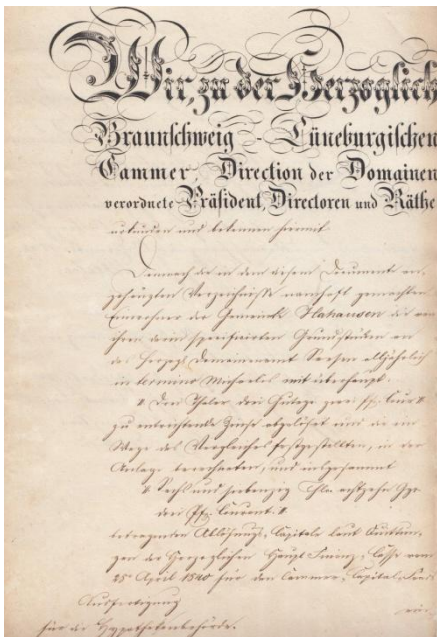 Wir, zu der Herzoglich
Braunschweig-Lüneburgischen
Cammer, Direction der Domainen
verordnete Präsident, Directoren und Räthe
urkunden und bekennen hiermit
Demnach die in dem diesem Document an-
gehängten Verzeichnisse namhaft gemachten
Einwohner der Gemeinde Hahausen die von
ihren darin specificirten Grundstücken an
das Herzogl. Domainenamt Seesen alljährlich
in termino Michaelis mit überhaupt
Drei Thaler drei Gutegr. zwei Cour.
zu entrichtende Zinse abgelöset und die im
Wege des Vergleiches festgestellten, in der
Anlage berechneten, und insgesammt
Sechs und siebenzig Thlr. achtzehn Ggr.
drei Courant.
betragenden Ablösungs-Capitale laut Quittun-
gen der Herzoglichen Haupt-Finanz-Casse vom
25 April 1840 für den Cammer-Capital-Fonds
Ausfertigung
für die Hypothekenbehörde.